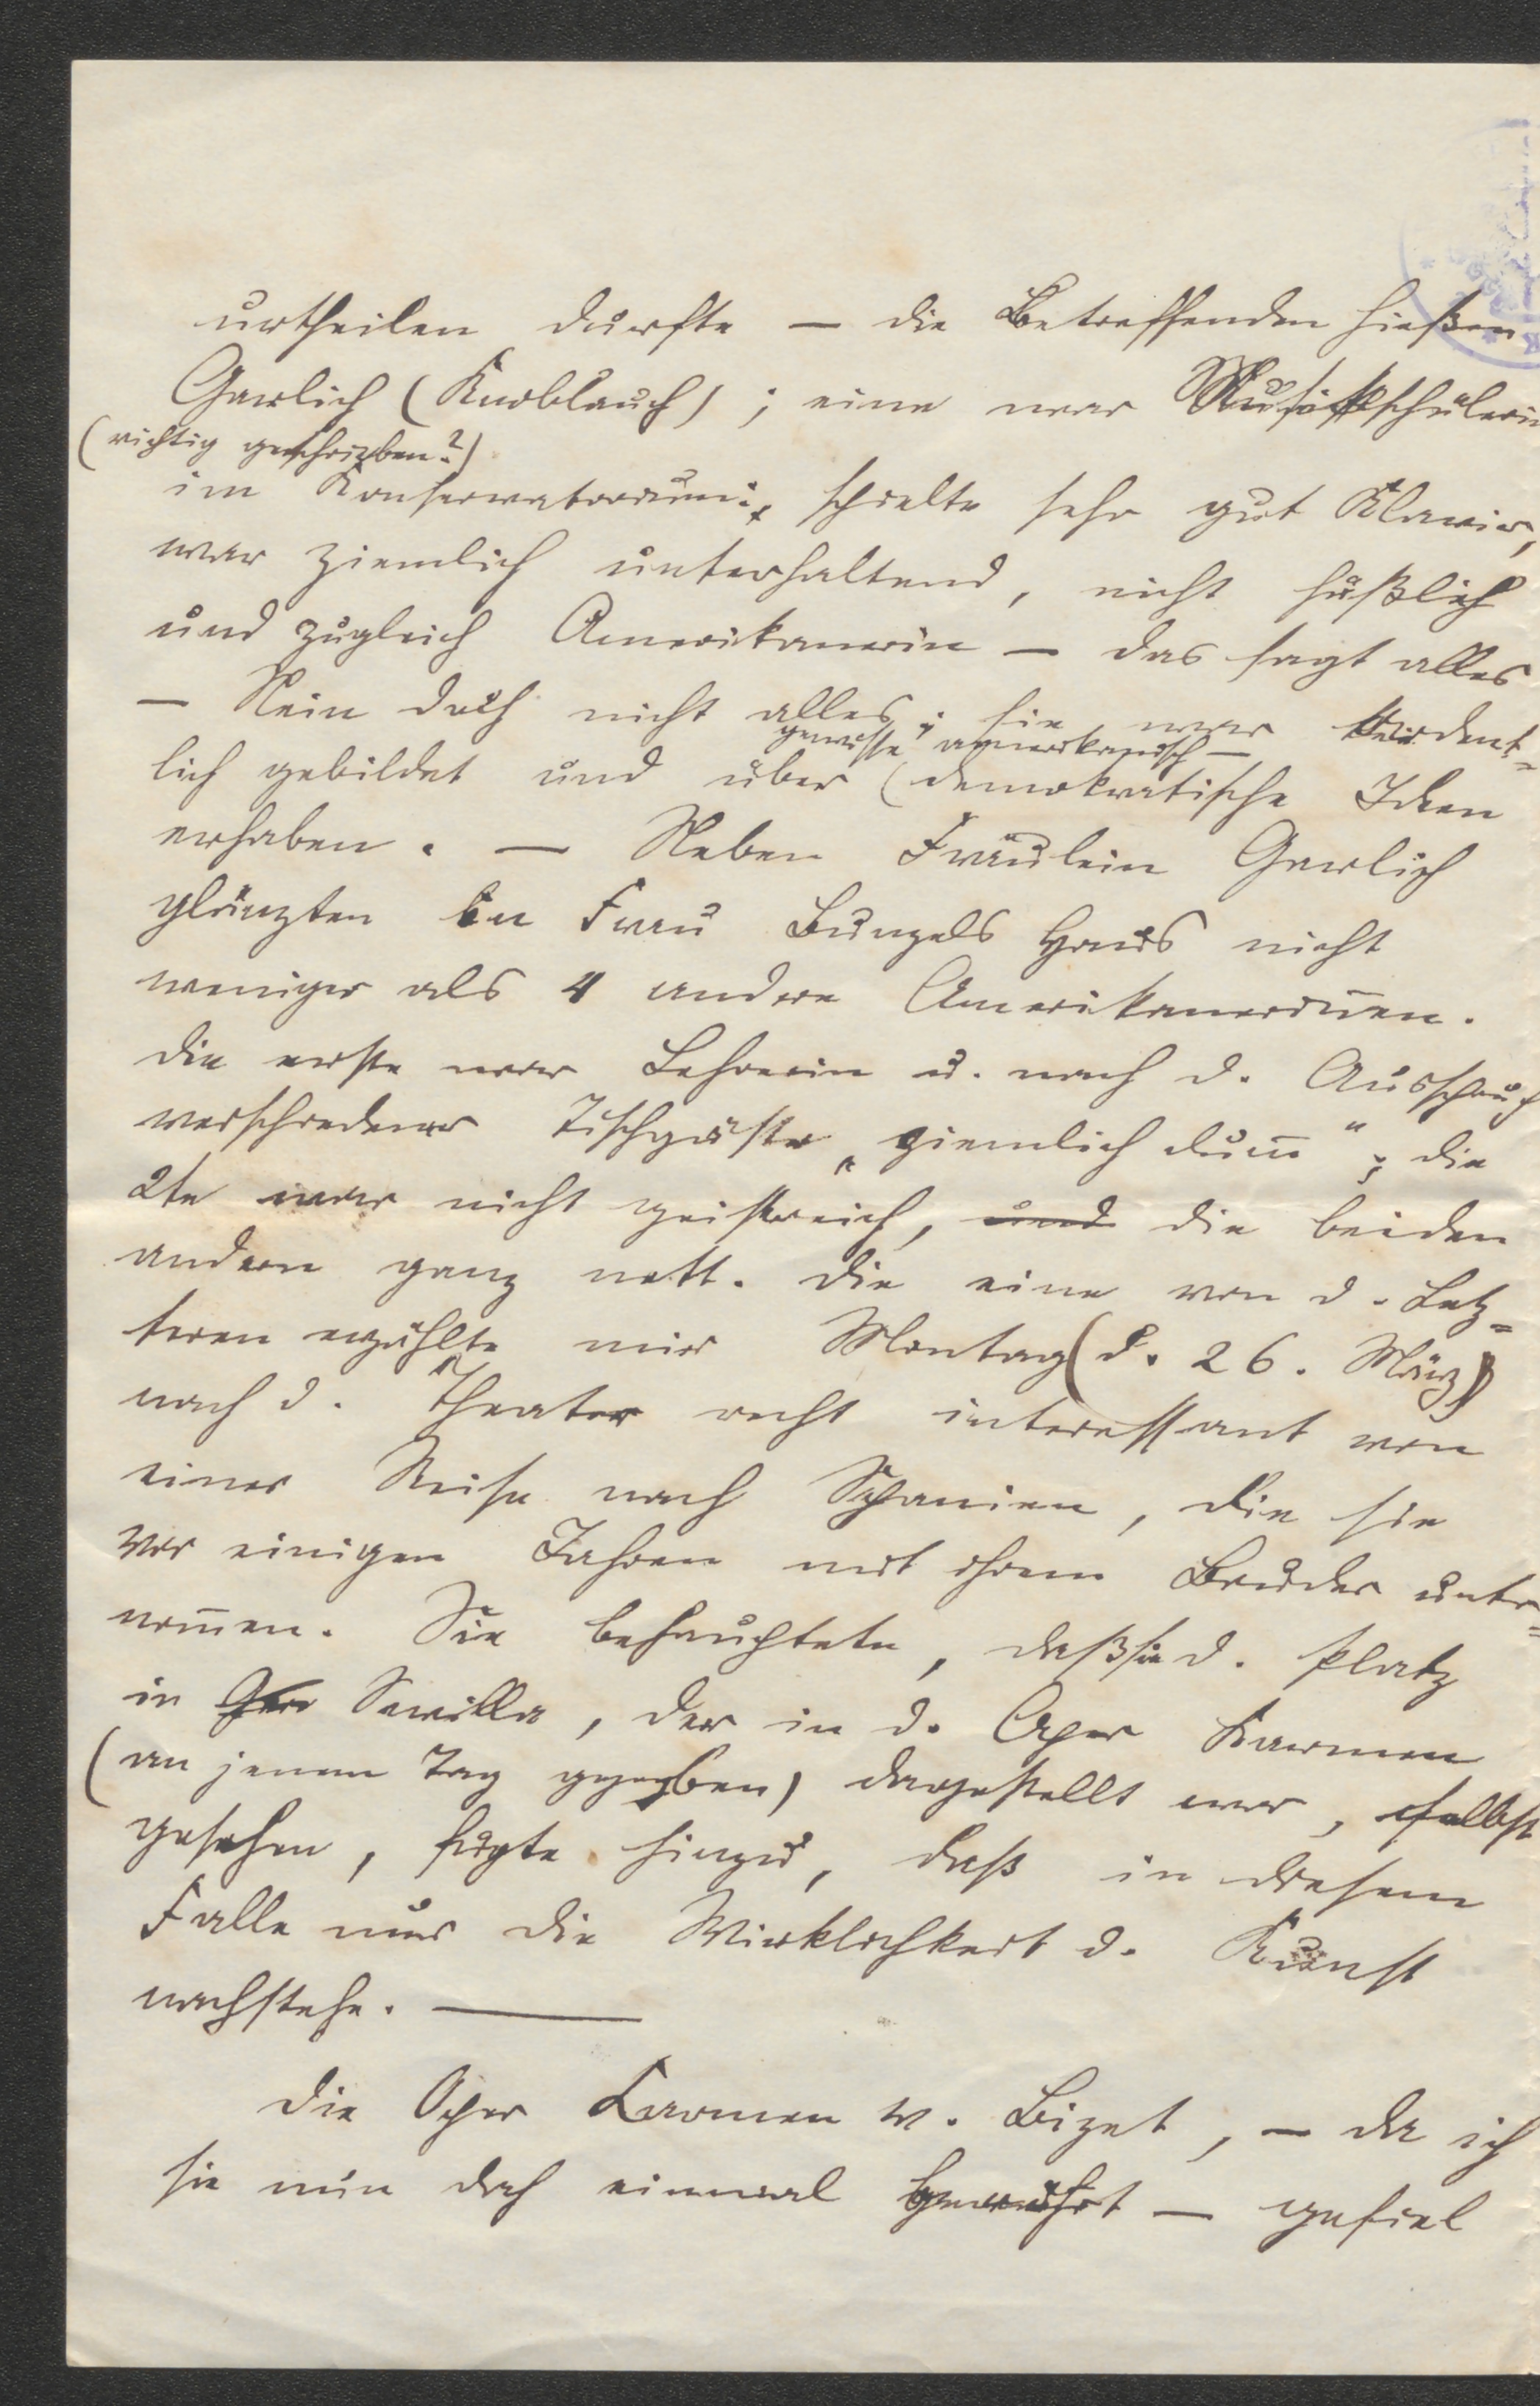 urtheilen durfte — die Betreffenden hießen
Garlich (Knoblauch); eine war Musikschülerin
(richtig geschrieben?)
im Konservatorium, spielte sehr gut Klavier,
war ziemlich unterhaltend, nicht häßlich
und zugleich Amerikanerin — das sagt alles
— Nein doch nicht alles; sie war
gewisse amerikanisch-
lich gebildet und über (demokratische Ideen
erhaben. — Neben Fräulein Garlich
glänzten in Frau Bunzels Haus nicht
weniger als 4 andere Amerikanerinen.
Die erste war Lehrerin u. nach d. Ausspruch
verschiedener Tischgäste „ziemlich dum̄"; die
2te war nicht geistreich, und die beiden
andern ganz nett. Die eine von d. Letz=
teren erzählte mir Montag (d. 26. März)
nach d. Theater recht interessant von
einer Reise nach Spanien, die sie
vor einigen Jahren mit ihrem Bruder unter=
nom̄en. Sie behauptete, daß sie d. Platz
in Sevilla, der in d. Oper Karmen
(an jenem Tag gegeben) dargestellt war, selbst
gesehen, fügte hinzu, daß in diesem
Falle nur die Wirklichkeit d. Kunst
nachstehe. —
Die Oper Karmen v. Bizet, — da ich
sie nun doch einmal — gefiel